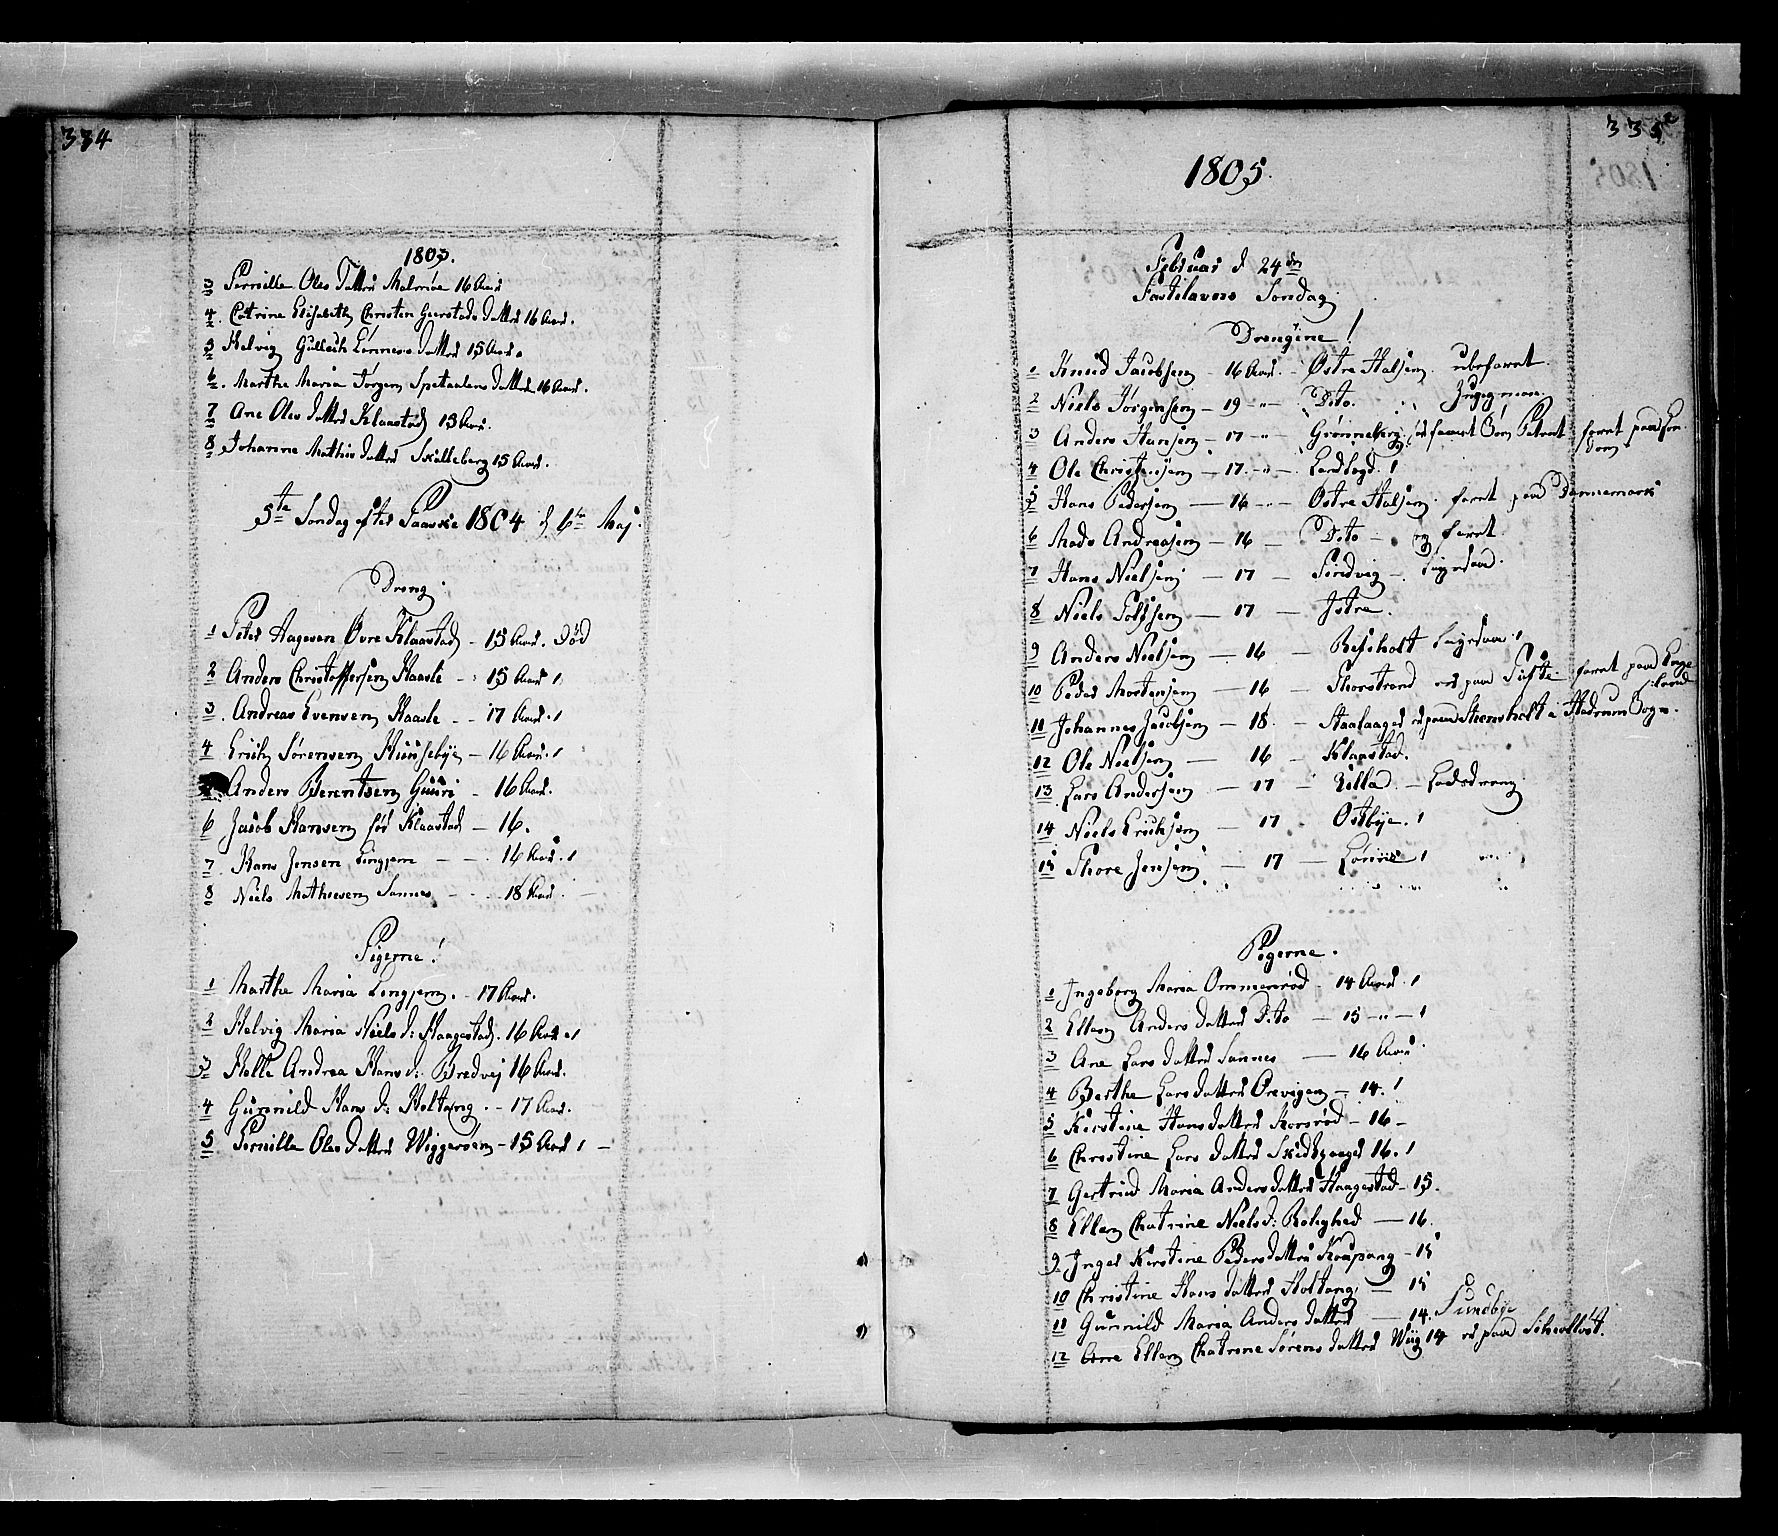 334
1803.
3 Pernille Oles Datter Malmøe 16 Aar
4. Catrine Elisabeth Christen Gierstads Datter 16 Aar.
5 Helvig Gullich Lønners Datter 15 Aar.
6. Marthe Maria Jørgen Spetalens Datter 16 Aar.
7 Ane Ols Datter Klaastad 15 Aar.
8 Johanne Mathis Datter Skilleberg 15 Aar.
5te Søndag efter Paaske 1804 d. 6te Maj.
Dreng
1 Peter Aagesen Øvre Klaastad - 15 Aar. Død
2 Anders Christoffersen Haasle - 15 Aar
3. Andreas Evensen Haasle - - 17 Aar.
4 Erich Sørensen Huusebye - 16 Aar.
Anders Berentsen Guuri - 16 Aar.
6 Jacob Hansen sør Klaastad - 16.
7. Hans Jensen Lingjem - - 16 Aar.
8 Niels Mathiesen Sannes - - 18 Aar.
Pigerne!
1 Marthe Maria Lingjem. - 17 Aar.
2 Helvig Maria Niels d: Haagestad. 16 Aar
3 Helle Andrea Hans d: Bredvej 16 Aar.
4 Gunnild Hans d: Holtang. - 17 Aar.
5 Pernille Oles Datter Wiggersøen - 15 Aar
335
1805.
Februar d 24de
Fastelavens Søndag
Drengene!
1 Knud Jacobsen - 16 Aar. - Østre Halsen. ubefaret.
2 Niels Jørgensen - 19 -"- Dito. Jugman.
3 Anders Hansen - 17 -"- Grønneberg faret
4 Ole Christensen - 17 -"- Landfogd.
5 Hans Pedersen - 16 -"- Østre Halsen. faret paa Dannemark
6 Mads Andreasen - 16 - Dito - og faret.
7 Hans Nielsen - 17 - Sindvig - ligesaa.
8 Niels Tolfsen - 17 - Istre.
9 Anders Nielsen - 16 - Refsholt ligesaa
10 Peder Mortensen - 16 - Thorstrand er paa Tufte faret paa Engeland
11 Johannes Jacobsen - 18 - Staalaager er paa Steensholt i Hedrum Sogn.
12 Ole Nielsen - 16 - Klaastad.
13 Lars Andersen - 17 - Ulla - Lodsdreng
14 Niels Erichsen - 17 - Østbye.
15 Thore Jensen - 17 - Lønne
Pigerne.
1 Ingeborg Maria Ommersrød - 14 Aar.
2 Ellen Anders Datter Dito - 15 -"-
3 Ane Lars Datter Sannes - 16 Aar
4 Berthe Lars Datter Orevigen - 14.
5 Kirstine Hans Datter Korsrød - 16 -
6 Christine Lars Datter Skidsaager 16.
7 Gertrud Maria Anders Datter Haagestad - 15.
8 Ellen Chatrine Niels d: Rolighed - 16.
9. Inger Kirstine Peders Datter Kaupang - 15
10 Christine Hans Datter Holtang - 15
11 Gunnild Maria Anders Datter - 14. Sundbye
12 Ane Ellen Chatrine Sørens Datter Wiig 14 er paa